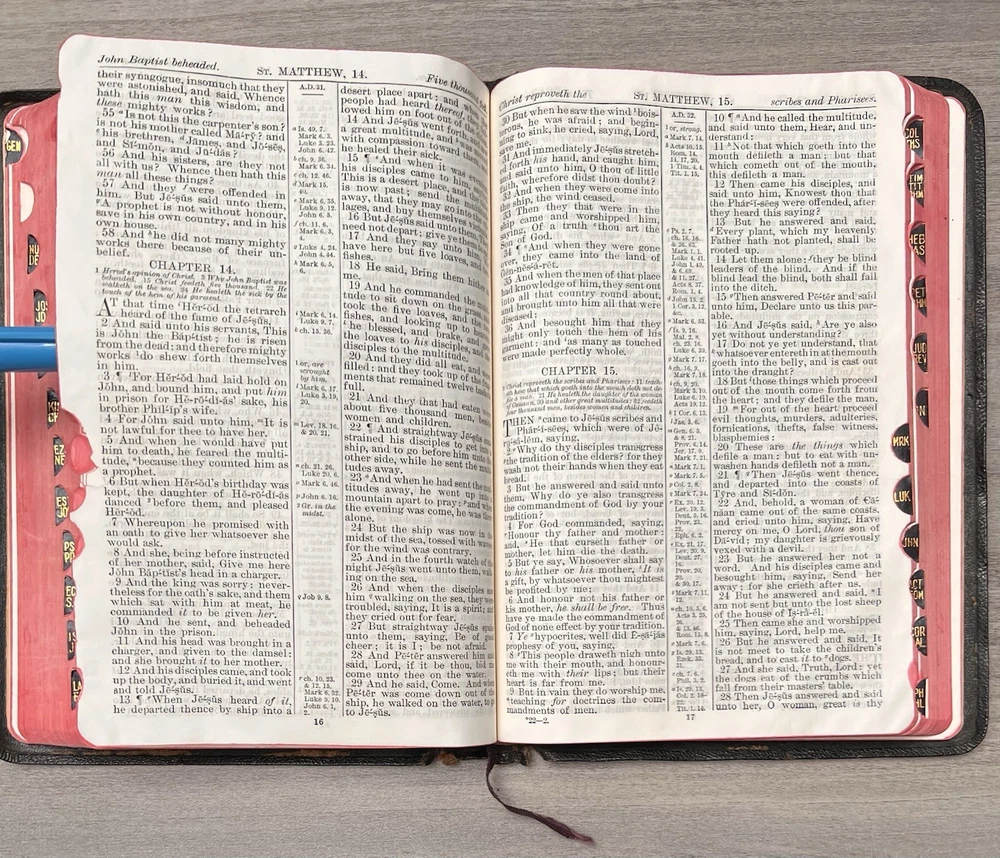 John Baptist beheaded.
ST. MATTHEW, 14.
Five thousand
their synagogue, insomuch that they
were astonished, and said, Whence
hath this man this wisdom, and
these mighty works?
55 Is not this the carpenter's son?
is not his mother called Mā́-rȳ? and
his brethren, James, and Jō-sēs,
and Sī́-mōn, and Jū́-das?
56 And his sisters, are they not
all with us? Whence then hath this
man all these things?
57 And they were offended in
him. But Jē-ṣŭs said unto them,
A prophet is not without honour,
save in his own country, and in his
own house.
58 And he did not many mighty
works there because of their un-
belief.
CHAPTER 14.
1 Herod's opinion of Christ. 3 Why John Baptist was
beheaded. 15 Christ feedeth five thousand. 22 He
walketh on the sea. 34 He healeth the sick by the
touch of the hem of his garment.
AT that time Hĕr-ŏd the tetrarch
heard of the fame of Jē-ṣŭs,
2 And said unto his servants, This
is Jŏhn the Băp-tĭst; he is risen
from the dead; and therefore mighty
works do shew forth themselves
in him.
3 ¶ For Hĕr-ŏd had laid hold on
Jŏhn, and bound him, and put him
in prison for Hĕ-rō-dĭ-ăs' sake, his
brother Phil-ĭp's wife.
4 For Jŏhn said unto him, It is
not lawful for thee to have her.
5 And when he would have put
him to death, he feared the multi-
tude, because they counted him as
a prophet.
6 But when Hĕr-ŏd's birthday was
kept, the daughter of Hĕ-rō-dĭ-ăs
danced before them, and pleased
Hĕr-ŏd.
7 Whereupon he promised with
an oath to give her whatsoever she
would ask.
8 And she, being before instructed
of her mother, said, Give me here
Jŏhn Băp-tĭst's head in a charger.
9 And the king was sorry: never-
theless for the oath's sake, and them
which sat with him at meat, he
commanded it to be given her.
10 And he sent, and beheaded
Jŏhn in the prison.
11 And his head was brought in a
charger, and given to the damsel:
and she brought it to her mother.
12 And his disciples came, and took
up the body, and buried it, and went
and told Jē-ṣŭs.
13 ¶ When Jē-ṣŭs heard of it,
he departed thence by ship into a
A.D. 31.
Is. 49, 7.
Mark 6. 3.
Luke 3. 23.
John 6. 42.
ch. 9. 36.
Mark 6. 14.
Luke 9. 7.
ch. 13. 36.
1 or, are
wrought
by him.
Lev. 18. 16
& 20. 21.
ch. 21. 26.
Luke 20. 6.
John 6. 16.
2 Gr. in the
midst.
Job 9. 8.
desert place apart: and when
people had heard thereof, they
lowed him on foot out of the
14 And Jē-ṣŭs went forth,
a great multitude, and
with compassion toward
he healed their sick.
15 ¶ And when it was
his disciples came to him,
This is a desert place, and
is now past; send the
away, that they may go into
lages, and buy themselves
16 But Jē-ṣŭs said unto
need not depart; give ye them
17 And they say unto
have here but five loaves,
fishes.
18 He said, Bring them hither
me.
19 And he commanded the
tude to sit down on the grass,
took the five loaves, and the
fishes, and looking up to
he blessed, and brake, and
the loaves to his disciples, and
disciples to the multitude.
20 And they did all eat, and
filled: and they took up of the
ments that remained twelve
full.
21 And they that had eaten
about five thousand men,
women and children.
22 ¶ And straightway Jē-ṣŭs
strained his disciples to get
ship, and to go before him unto
other side, while he sent the
tudes away.
23 And when he had sent the
titudes away, he went up into
mountain apart to pray: and
the evening was come, he was
alone.
24 But the ship was now in
midst of the sea, tossed with waves:
for the wind was contrary.
25 And in the fourth watch of
night Jē-ṣŭs went unto them, walk-
ing on the sea.
26 And when the disciples
him walking on the sea, they
troubled, saying, It is a spirit; and
they cried out for fear.
27 But straightway Jē-ṣŭs
unto them, saying, Be of good
cheer; it is I; be not afraid.
28 And Pē-tĕr answered him and
said, Lord, if it be thou, bid me
come unto thee on the water.
29 And he said, Come. And when
Pē-tĕr was come down out of the
ship, he walked on the water, to go
to Jē-ṣŭs.
16
Christ reproveth the
ST. MATTHEW, 15.
scribes and Pharisees.
30 But when he saw the wind bois-
terous, he was afraid; and begin-
ning to sink, he cried, saying, Lord,
save me.
31 And immediately Jē-ṣŭs stretch-
ed forth his hand, and caught him,
and said unto him, O thou of little
faith, wherefore didst thou doubt?
32 And when they were come into
the ship, the wind ceased.
33 Then they that were in the
ship came and worshipped him,
saying, Of a truth thou art the
Son of God.
34 ¶ And when they were gone
over, they came into the land of
Gĕn-nĕs-ă-rĕt.
35 And when the men of that place
had knowledge of him, they sent out
into all that country round about,
and brought unto him all that were
diseased;
36 And besought him that they
might only touch the hem of his
garment: and as many as touched
were made perfectly whole.
CHAPTER 15.
3 Christ reproveth the scribes and Pharisees: 11 teach-
eth how that which goeth into the mouth doth not de-
file a man. 21 He healeth the daughter of the woman
of Canaan, 30 and other great multitudes: 32 feedeth
four thousand men, besides women and children.
THEN came to Jē-ṣŭs scribes and
Phăr-ĭ-sēes, which were of Jē-
rụ-să-lĕm, saying,
2 Why do thy disciples transgress
the tradition of the elders? for they
wash not their hands when they eat
bread.
3 But he answered and said unto
them, Why do ye also transgress
the commandment of God by your
tradition?
4 For God commanded, saying,
Honour thy father and mother:
and, He that curseth father or
mother, let him die the death.
5 But ye say, Whosoever shall say
to his father or his mother, It is
a gift, by whatsoever thou mightest
be profited by me;
6 And honour not his father or
his mother, he shall be free. Thus
have ye made the commandment of
God of none effect by your tradition.
7 Ye hypocrites, well did E-ṣā-ĭăs
prophesy of you, saying,
8 This people draweth nigh unto
me with their mouth, and honour-
eth me with their lips; but their
heart is far from me.
9 But in vain they do worship me,
teaching for doctrines the com-
mandments of men.
A.D. 32.
1 or, strong.
Mark 7. 14.
Acts 10. 15.
Rom. 14.
14, 17, 20.
1 Tim. 4. 4.
Tit. 1. 15.
10 ¶ And he called the multitude,
and said unto them, Hear, and un-
derstand:
11 Not that which goeth into the
mouth defileth a man; but that
which cometh out of the mouth,
this defileth a man.
12 Then came his disciples, and
said unto him, Knowest thou that
the Phăr-ĭ-sēes were offended, after
they heard this saying?
13 But he answered and said,
Every plant, which my heavenly
Father hath not planted, shall be
rooted up.
14 Let them alone: they be blind
leaders of the blind. And if the
blind lead the blind, both shall fall
into the ditch.
15 Then answered Pē-tĕr and said
unto him, Declare unto us this par-
able.
16 And Jē-ṣŭs said, Are ye also
yet without understanding?
17 Do not ye yet understand, that
whatsoever entereth in at the mouth
goeth into the belly, and is cast out
into the draught?
18 But those things which proceed
out of the mouth come forth from
the heart; and they defile the man.
19 For out of the heart proceed
evil thoughts, murders, adulteries,
fornications, thefts, false witness,
blasphemies:
20 These are the things which
defile a man: but to eat with un-
washen hands defileth not a man.
21 ¶ Then Jē-ṣŭs went thence,
and departed into the coasts of
Tyre and Sī-dŏn.
22 And, behold, a woman of Cā-
năan came out of the same coasts,
and cried unto him, saying, Have
mercy on me, O Lord, thou son of
Dā-vid; my daughter is grievously
vexed with a devil.
23 But he answered her not a
word. And his disciples came and
besought him, saying, Send her
away; for she crieth after us.
24 But he answered and said, I
am not sent but unto the lost sheep
of the house of Ĭs-rā-ĕl.
25 Then came she and worshipped
him, saying, Lord, help me.
26 But he answered and said, It
is not meet to take the children's
bread, and to cast it to dogs.
27 And she said, Truth, Lord: yet
the dogs eat of the crumbs which
fall from their masters' table.
28 Then Jē-ṣŭs answered and said
unto her, O woman, great is thy
*22—2
17
GEN
MRK
LUK
JHN